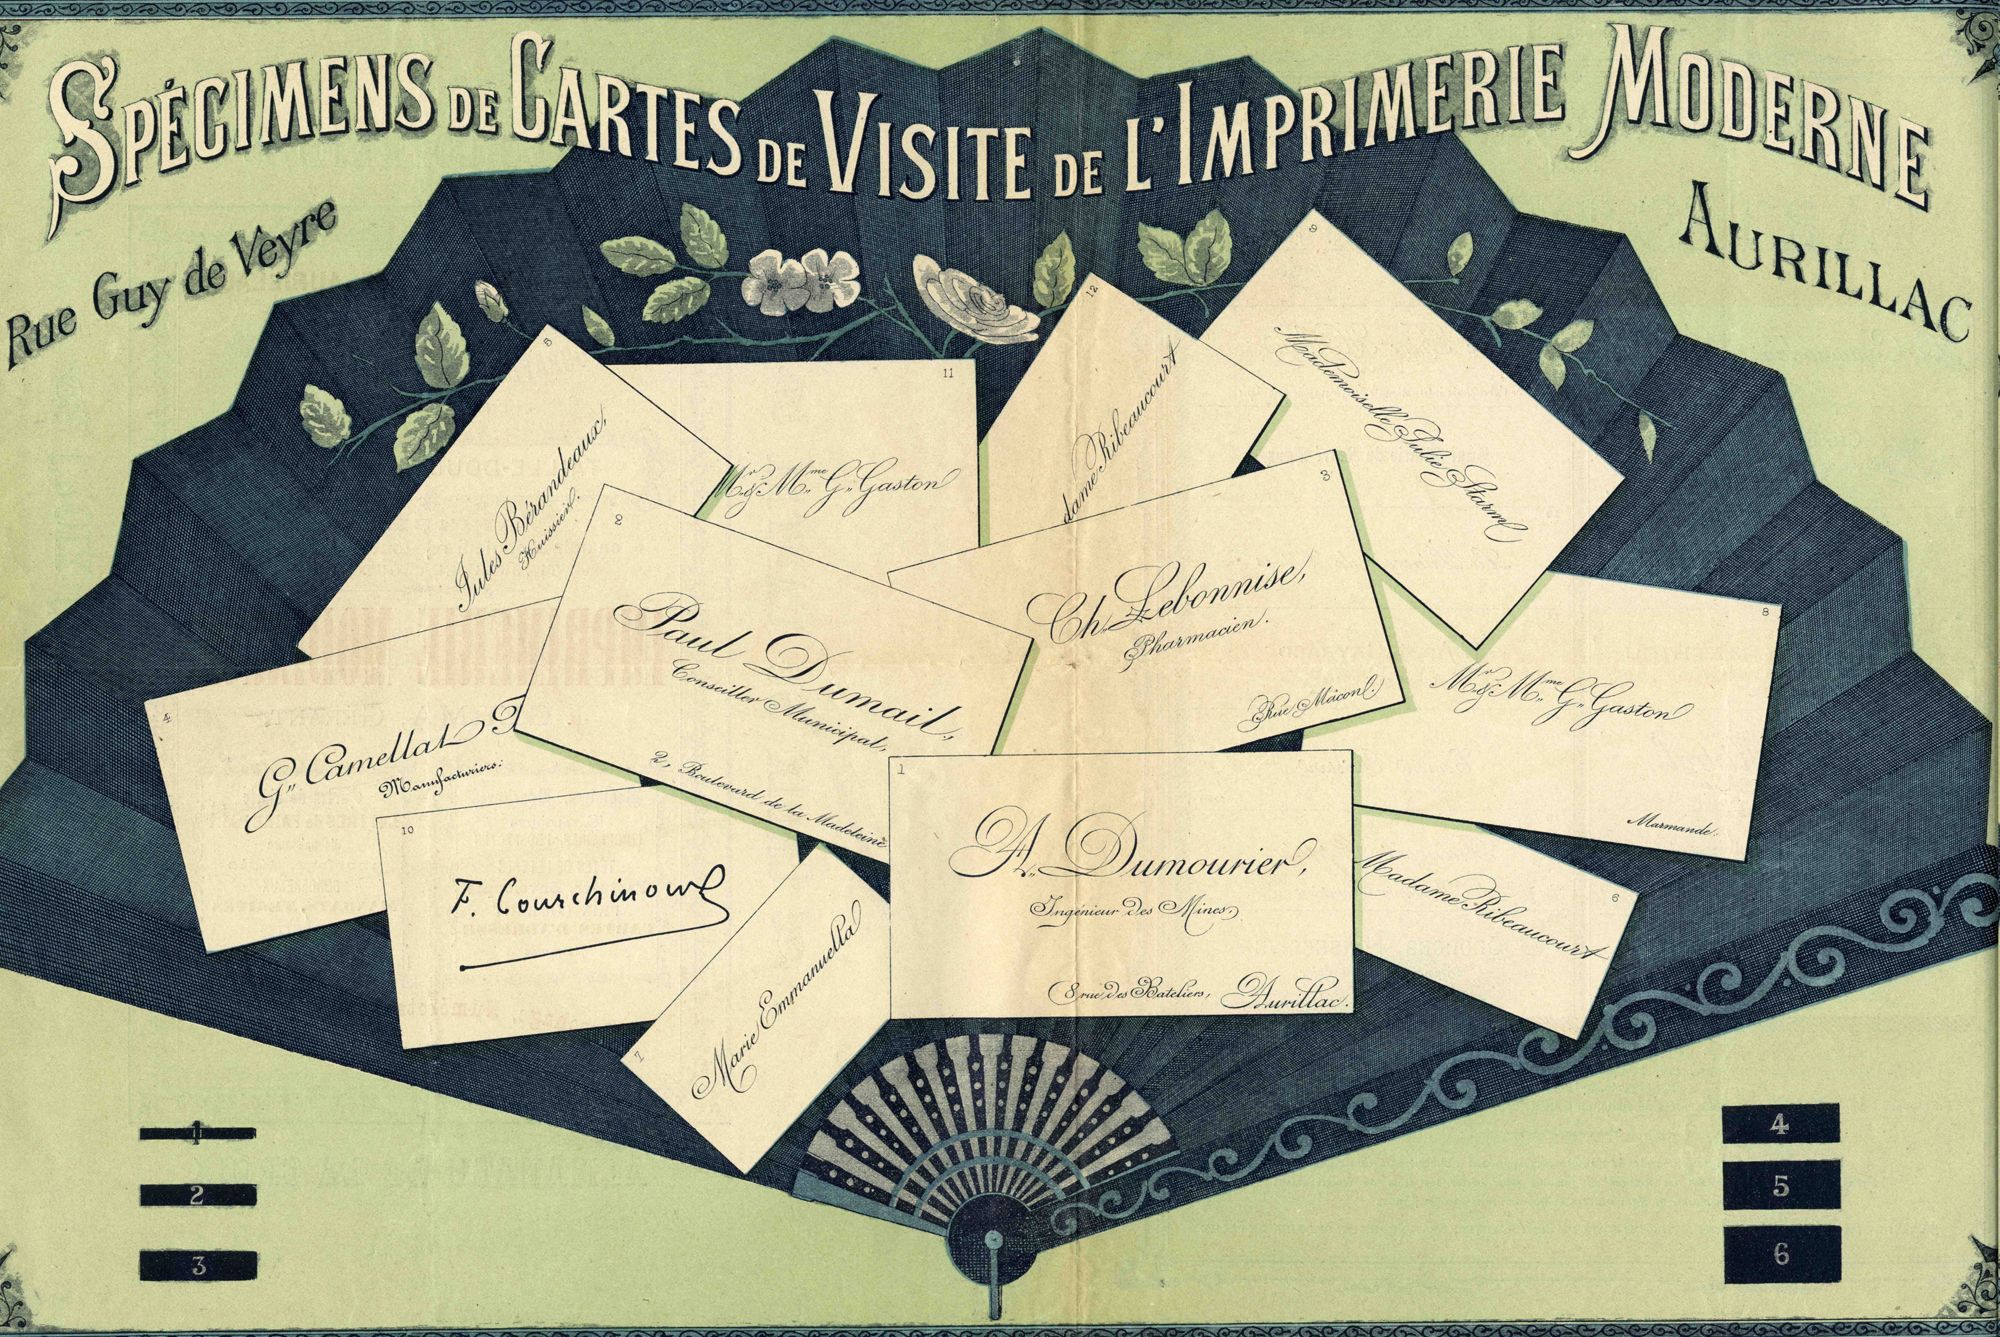 SPÉCIMENS DE CARTES DE VISITE DE L'IMPRIMERIE MODERNE
Rue Guy de Veyre
AURILLAC
5
Jules Bérandeaux,
Huissier.
11
Mr & Mme G. Gaston
12
dame Ribeaucourt
9
Mademoiselle Julie Starm
4
G. Camellat
Manufacturiers.
2
Paul Dumail,
Conseiller Municipal,
2, Boulevard de la Madeleine
3
Ch. Lebonnise,
Pharmacien.
Rue Mâcon.
8
Mr & Mme G. Gaston
Marmande.
10
F. Courchinoux
7
Marie Emmanuella
1
A. Dumourier,
Ingénieur des Mines
8 rue des Bateliers, Aurillac.
6
Madame Ribeaucourt
1
2
3
4
5
6